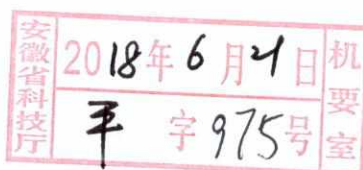 安徽省科技厅
2018年6月21日
平字975号
机要室